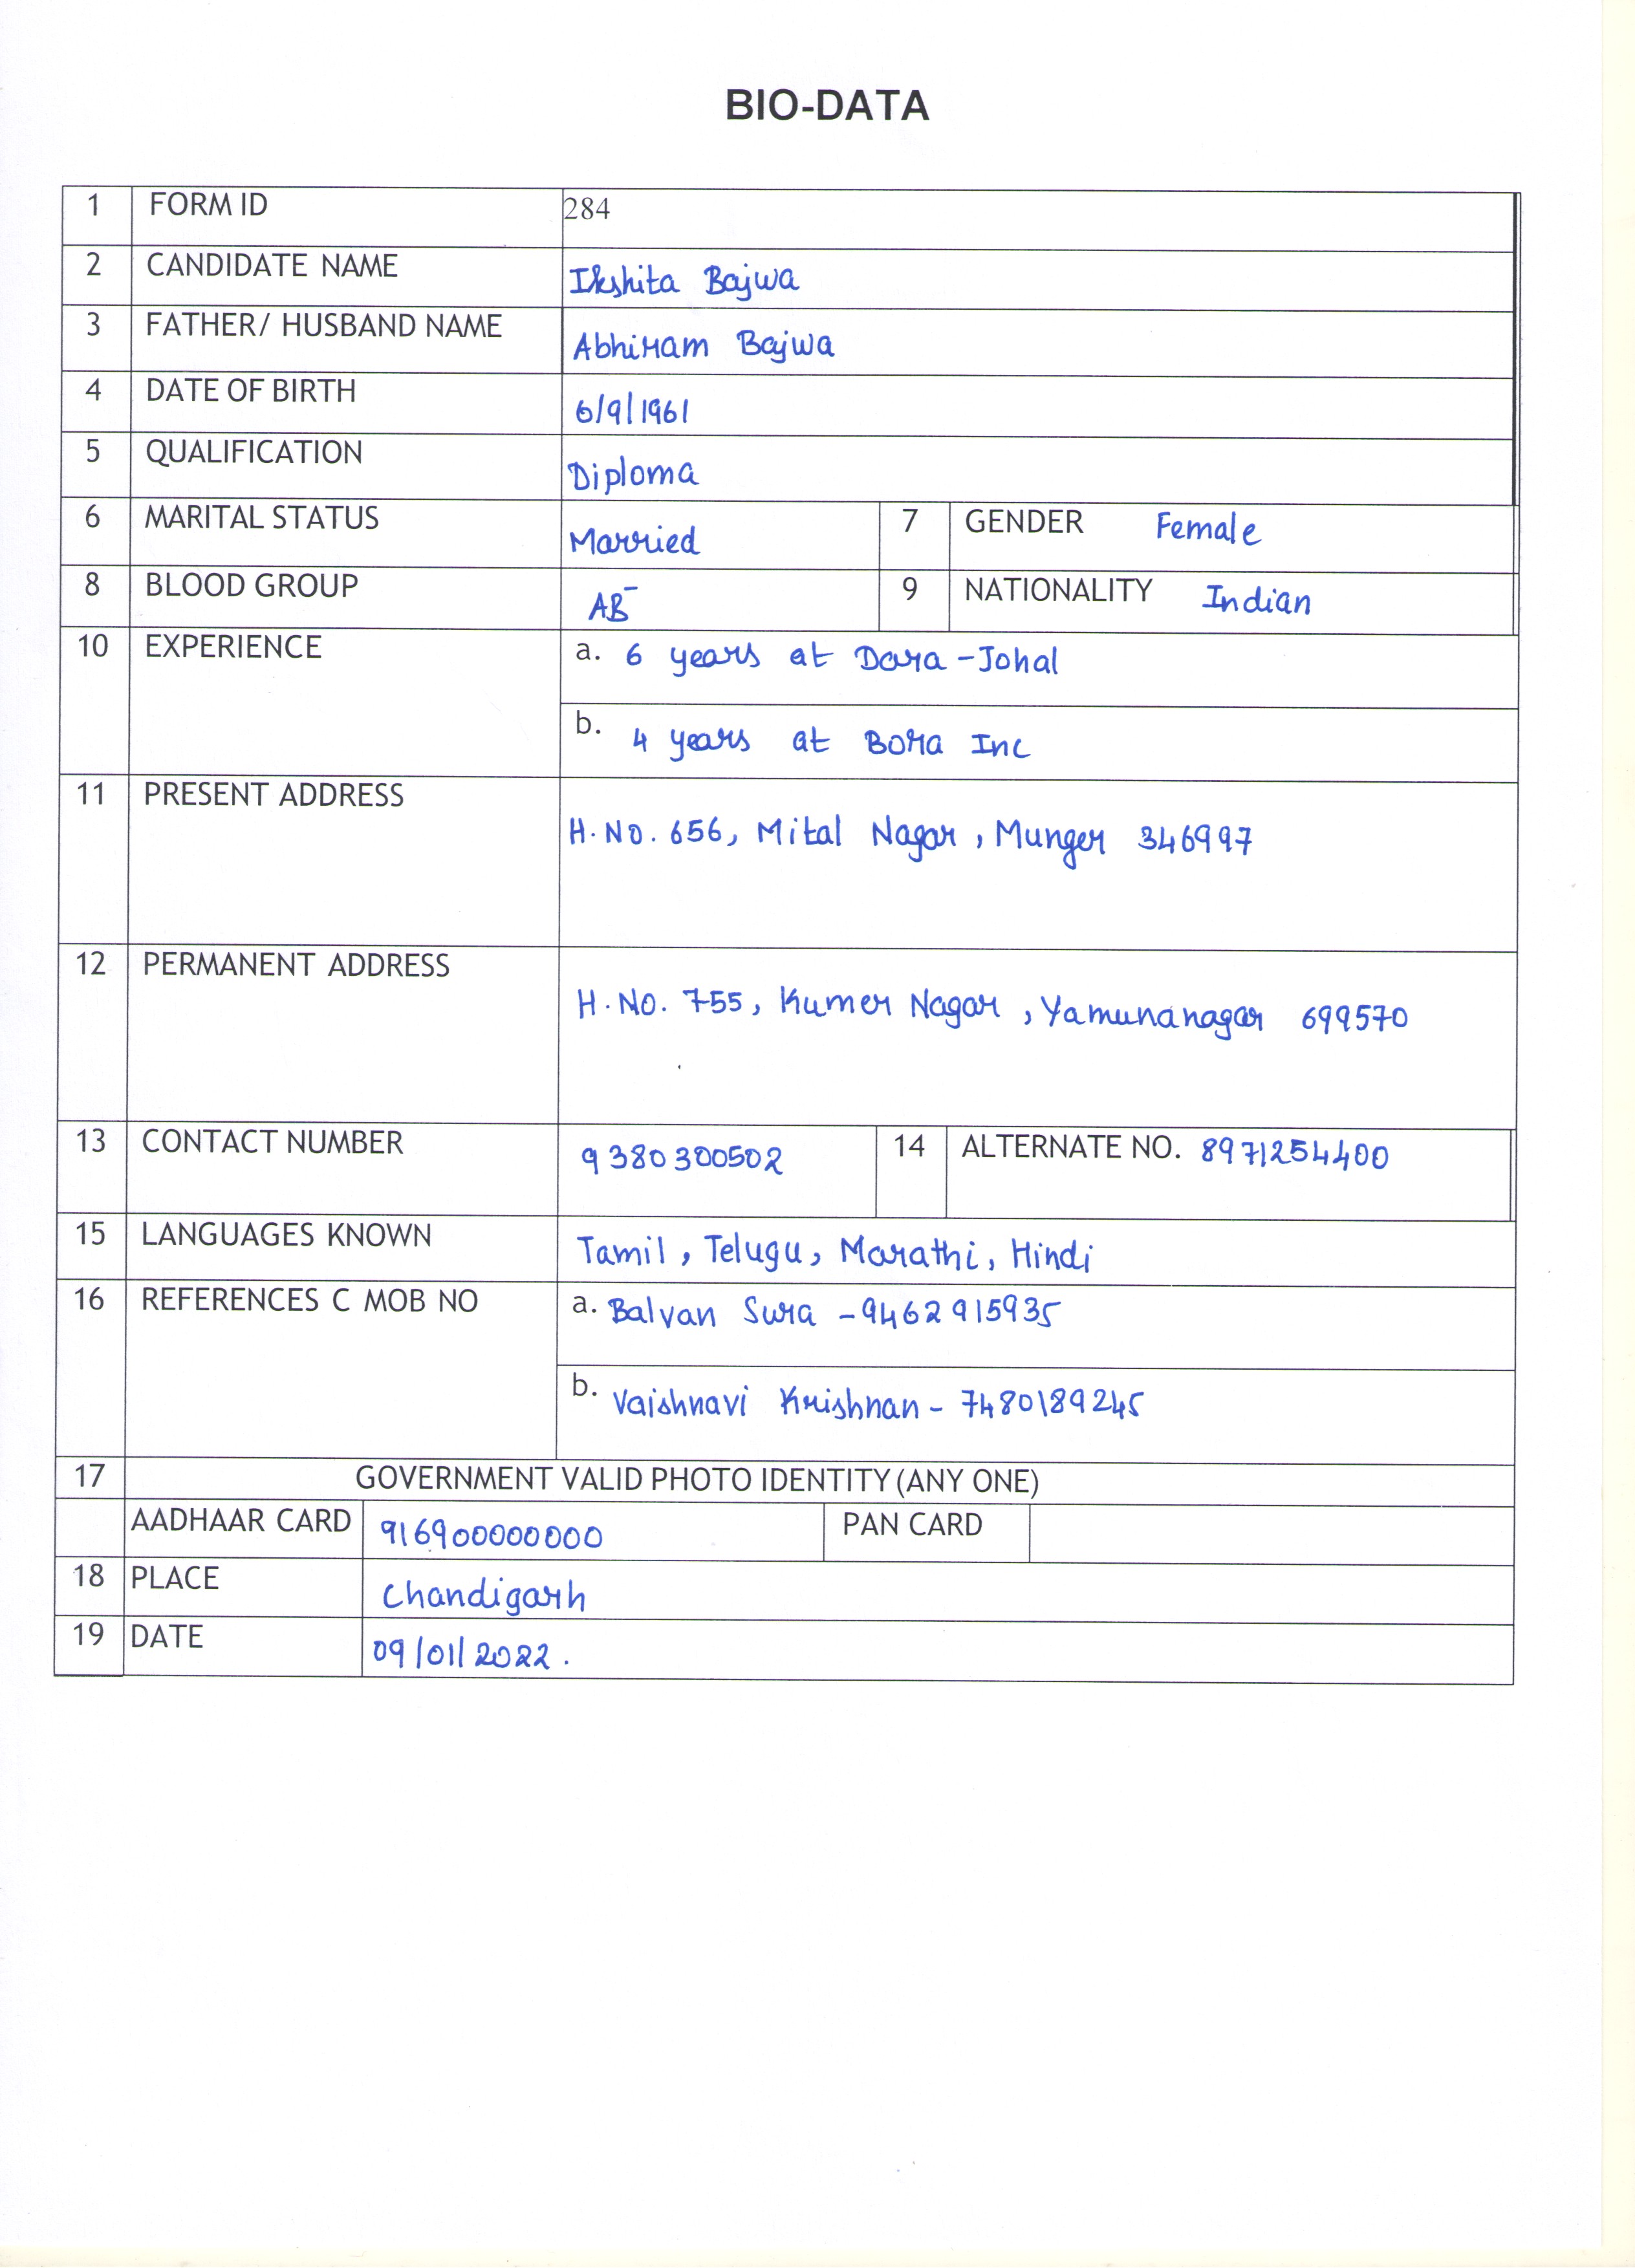 BIO-DATA
1 FORM ID 284
2 CANDIDATE NAME Ikshita Bajwa
3 FATHER/ HUSBAND NAME Abhiram Bajwa
4 DATE OF BIRTH 6/9/1961
5 QUALIFICATION Diploma
6 MARITAL STATUS Married 7 GENDER Female
8 BLOOD GROUP AB- 9 NATIONALITY Indian
10 EXPERIENCE a. 6 years at Dara-Johal
b. 4 years at Bora Inc
11 PRESENT ADDRESS
H.No. 656, Mital Nagar, Munger 346997
12 PERMANENT ADDRESS
H.No. 755, Kumer Nagar, Yamunanagar 699570
13 CONTACT NUMBER 9380300502 14 ALTERNATE NO. 8971254400
15 LANGUAGES KNOWN Tamil, Telugu, Marathi, Hindi
16 REFERENCES C MOB NO a. Balvan Sura - 9462915935
b. Vaishnavi Krishnan - 7480189245
17 GOVERNMENT VALID PHOTO IDENTITY (ANY ONE)
AADHAAR CARD 916900000000 PAN CARD
18 PLACE Chandigarh
19 DATE 09/01/2022.